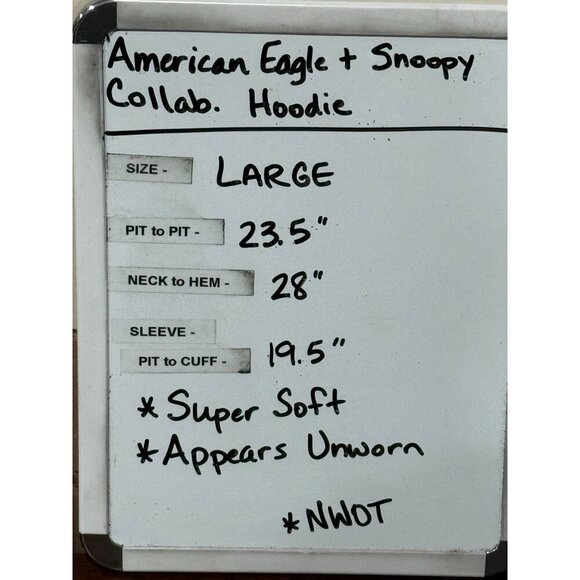 American Eagle + Snoopy
Collab. Hoodie
SIZE - LARGE
PIT to PIT - 23.5"
NECK to HEM - 28"
SLEEVE -
PIT to CUFF - 19.5"
* Super Soft
* Appears Unworn
* NWOT